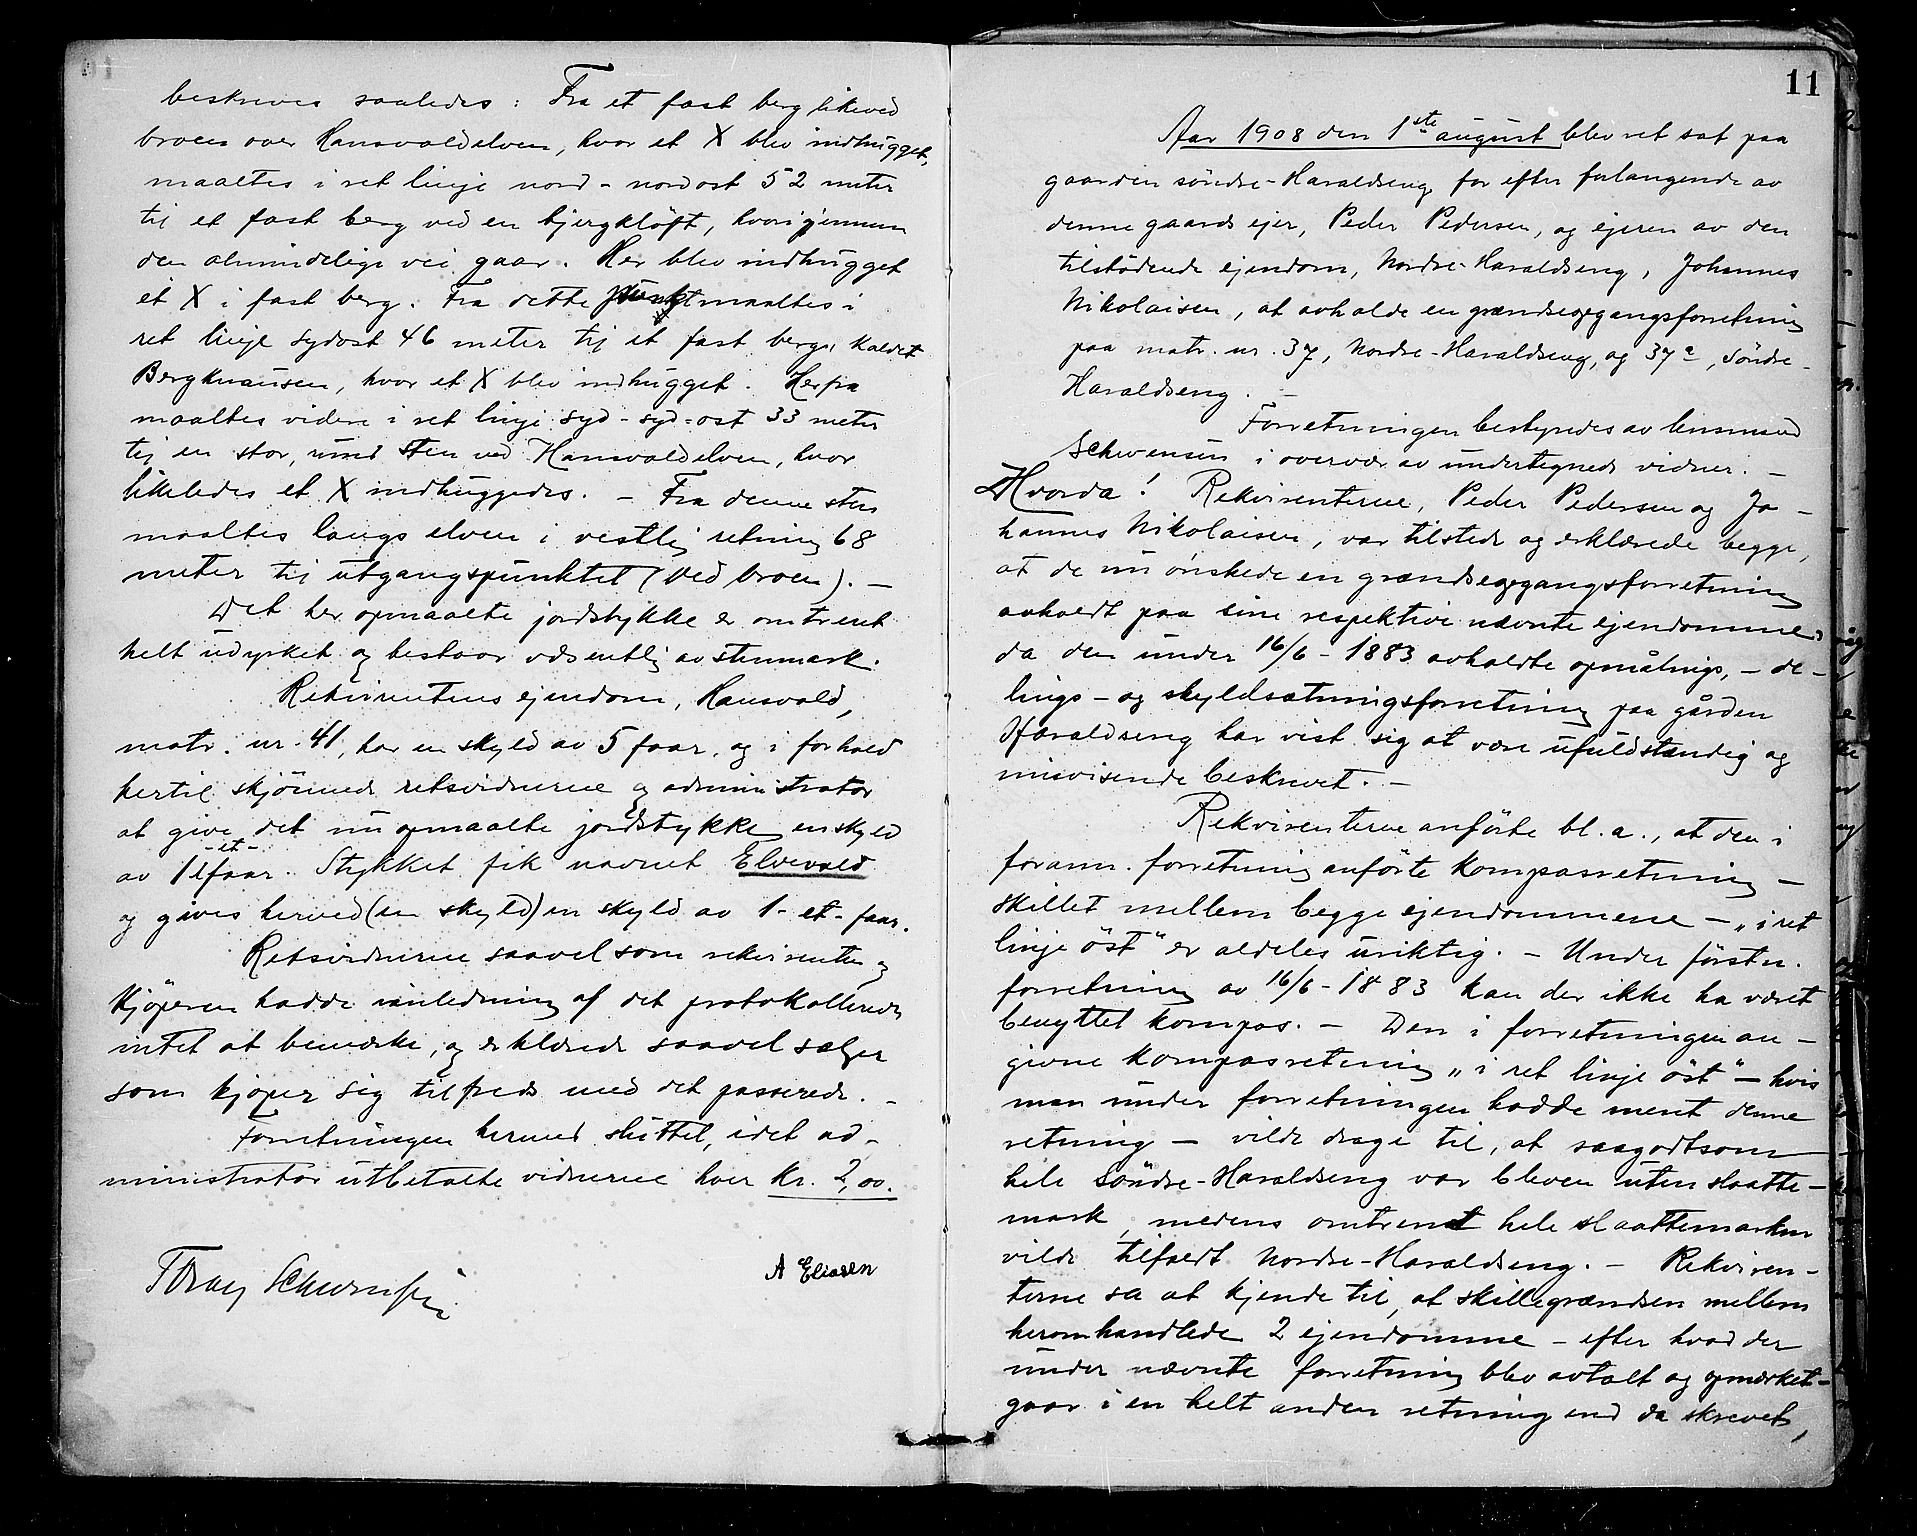 beskreves saaledes: Fra et fast berg likeved
broen over Hansvoldelven, hvor et X blev indhugget,
maaltes i ret linje nord-nordost 52 meter
til et fast berg ved en bjergkløft, hvorigjennem
den almindelige vei gaar. Her blev indhugget
et X i fast berg. Fra dette punkt maaltes i
ret linje sydost 46 meter til et fast berg, kaldet
Bergknausen, hvor et X blev indhugget. Herfra
maaltes videre i ret linje syd-syd-ost 33 meter
til en stor, rund sten ved Hansvoldelven, hvor
likeledes et X indhuggedes. - Fra denne sten
maaltes langs elven i vestlig retning 68
meter til utgangspunktet (ved broen). -
Det her opmaalte jordstykke er omtrent
helt udyrket og bestaar væsentlig av stenmark.
Rekvirentens ejendom, Hansvold,
matr. nr. 41, har en skyld av 5 faar, og i forhold
hertil skjønnede retsvidnerne og administrator
at give det nu opmaalte jordstykke en skyld
av 1 -et- faar. Stykket fik navnet Elvevold
og gives herved (en skyld) en skyld av 1-et-faar.
Retsvidnerne saavel som rekvirenten og
kjøperen hadde i anledning af det protokollerede
intet at bemærke, og erklærede saavel sælger
som kjøper sig tilfreds med det passerede. -
Forretningen hermed sluttet, idet ad-
ministrator utbetalte vidnerne hver kr. 2,00.
A Eliasen
11
Aar 1908 den 1ste august blev ret sat paa
gaarden søndre-Haraldseng for efter forlangende av
denne gaards ejer, Peder Pedersen, og ejeren av den
tilstødende ejendom, Nordre-Haraldseng, Johannes
Nikolaisen, at avholde en grændseopgangsforretning
paa matr. nr. 37, Nordre-Haraldseng, og 37a, Søndre-
Haraldseng. -
Forretningen bestyredes av lensmand
Schwensen i overvær av undertegnede vidner. -
Hvorda! Rekvirenterne, Peder Pedersen og Jo-
hannes Nikolaisen, var tilstede og erklærede begge,
at de nu ønskede en grændseopgangsforretning
avholdt paa sine respektive nævnte ejendomme,
da den under 16/6-1883 avholdte opmålnings,- de-
lings- og skyldsætningsforretning paa gården
Haraldseng har vist sig at være ufuldstændig og
misvisende beskrevet. -
Rekvirenterne anførte bl.a., at den i
forann. forretning anførte kompasretning -
skillet mellem begge ejendommene - "i ret
linje øst" er aldeles uriktig. - Under førstn.
forretning av 16/6-1883 kan der ikke ha været
benyttet kompas. - Den i forretningen an-
givne kompasretning "i ret linje øst" - hvis
man under forretningen hadde ment denne
retning - vilde drage til, at saagodtsom
hele Søndre-Haraldseng var bleven uten slaatte-
mark, medens omtrent hele slaattemarken
vilde tilfaldt Nordre-Haraldseng. - Rekviren-
terne sa at kjende til, at skillegrændsen mellem
heromhandlede 2 ejendomme - efter hvad der
under nævnte forretning blev avtalt og opmærket -
gaar i en helt anden retning end da skrevet,